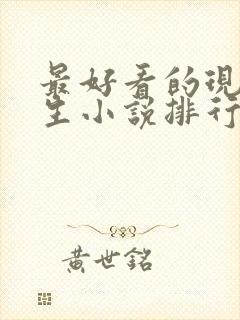 最好看的現
生小說排行
黃世銘